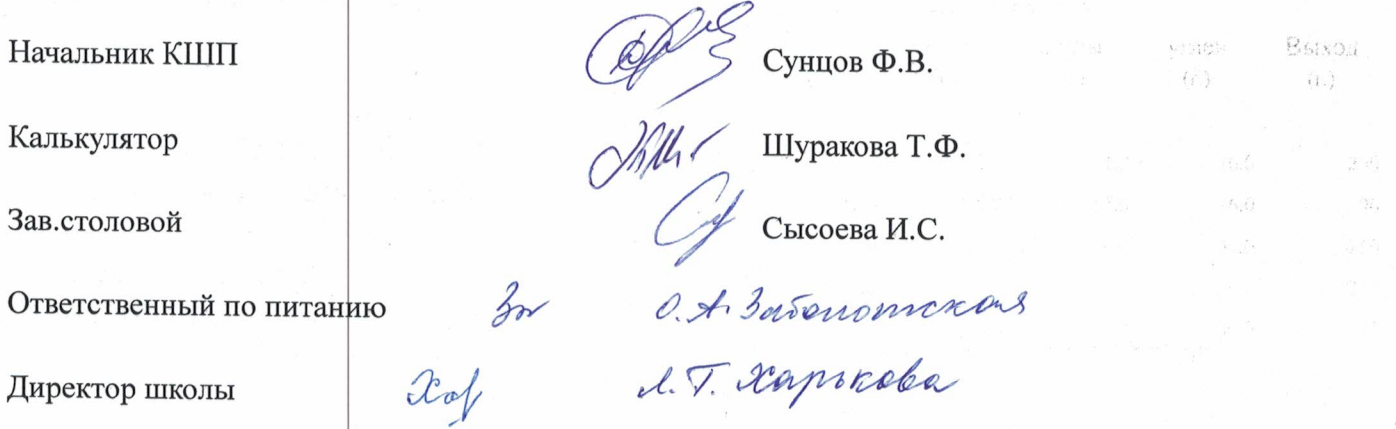 Начальник КШП Сунцов Ф.В.
Калькулятор Шуракова Т.Ф.
Зав.столовой Сысоева И.С.
Ответственный по питанию О.А. Заболотская
Директор школы Л.Т. Харькова